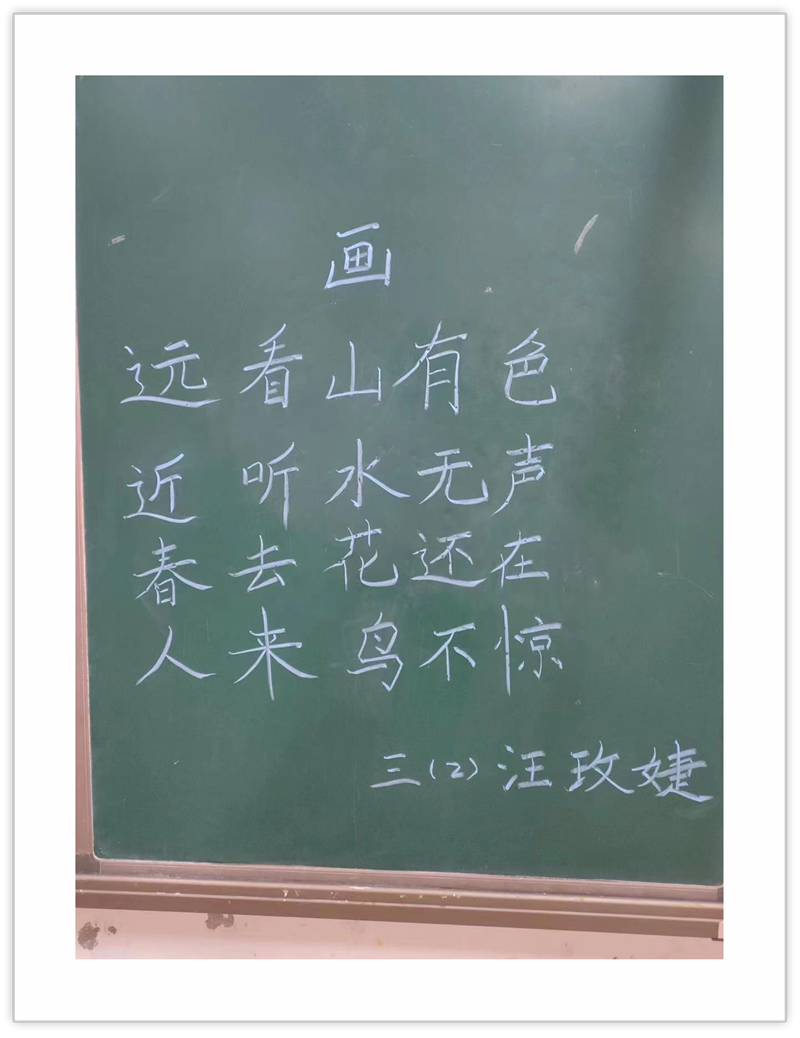 画
远看山有色
近听水无声
春去花还在
人来鸟不惊
三(2)汪玫婕